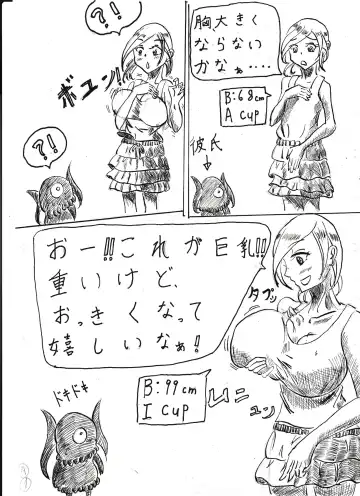 胸大きく
ならない
かなぁ・・・・
B:68cm
A cup
彼氏
?!
ボユン!!
?!
おー!!これが巨乳!!
重いけど、
おっきくなって
嬉しいなぁ!
タプッ
B:99cm
I cup
ドキドキ